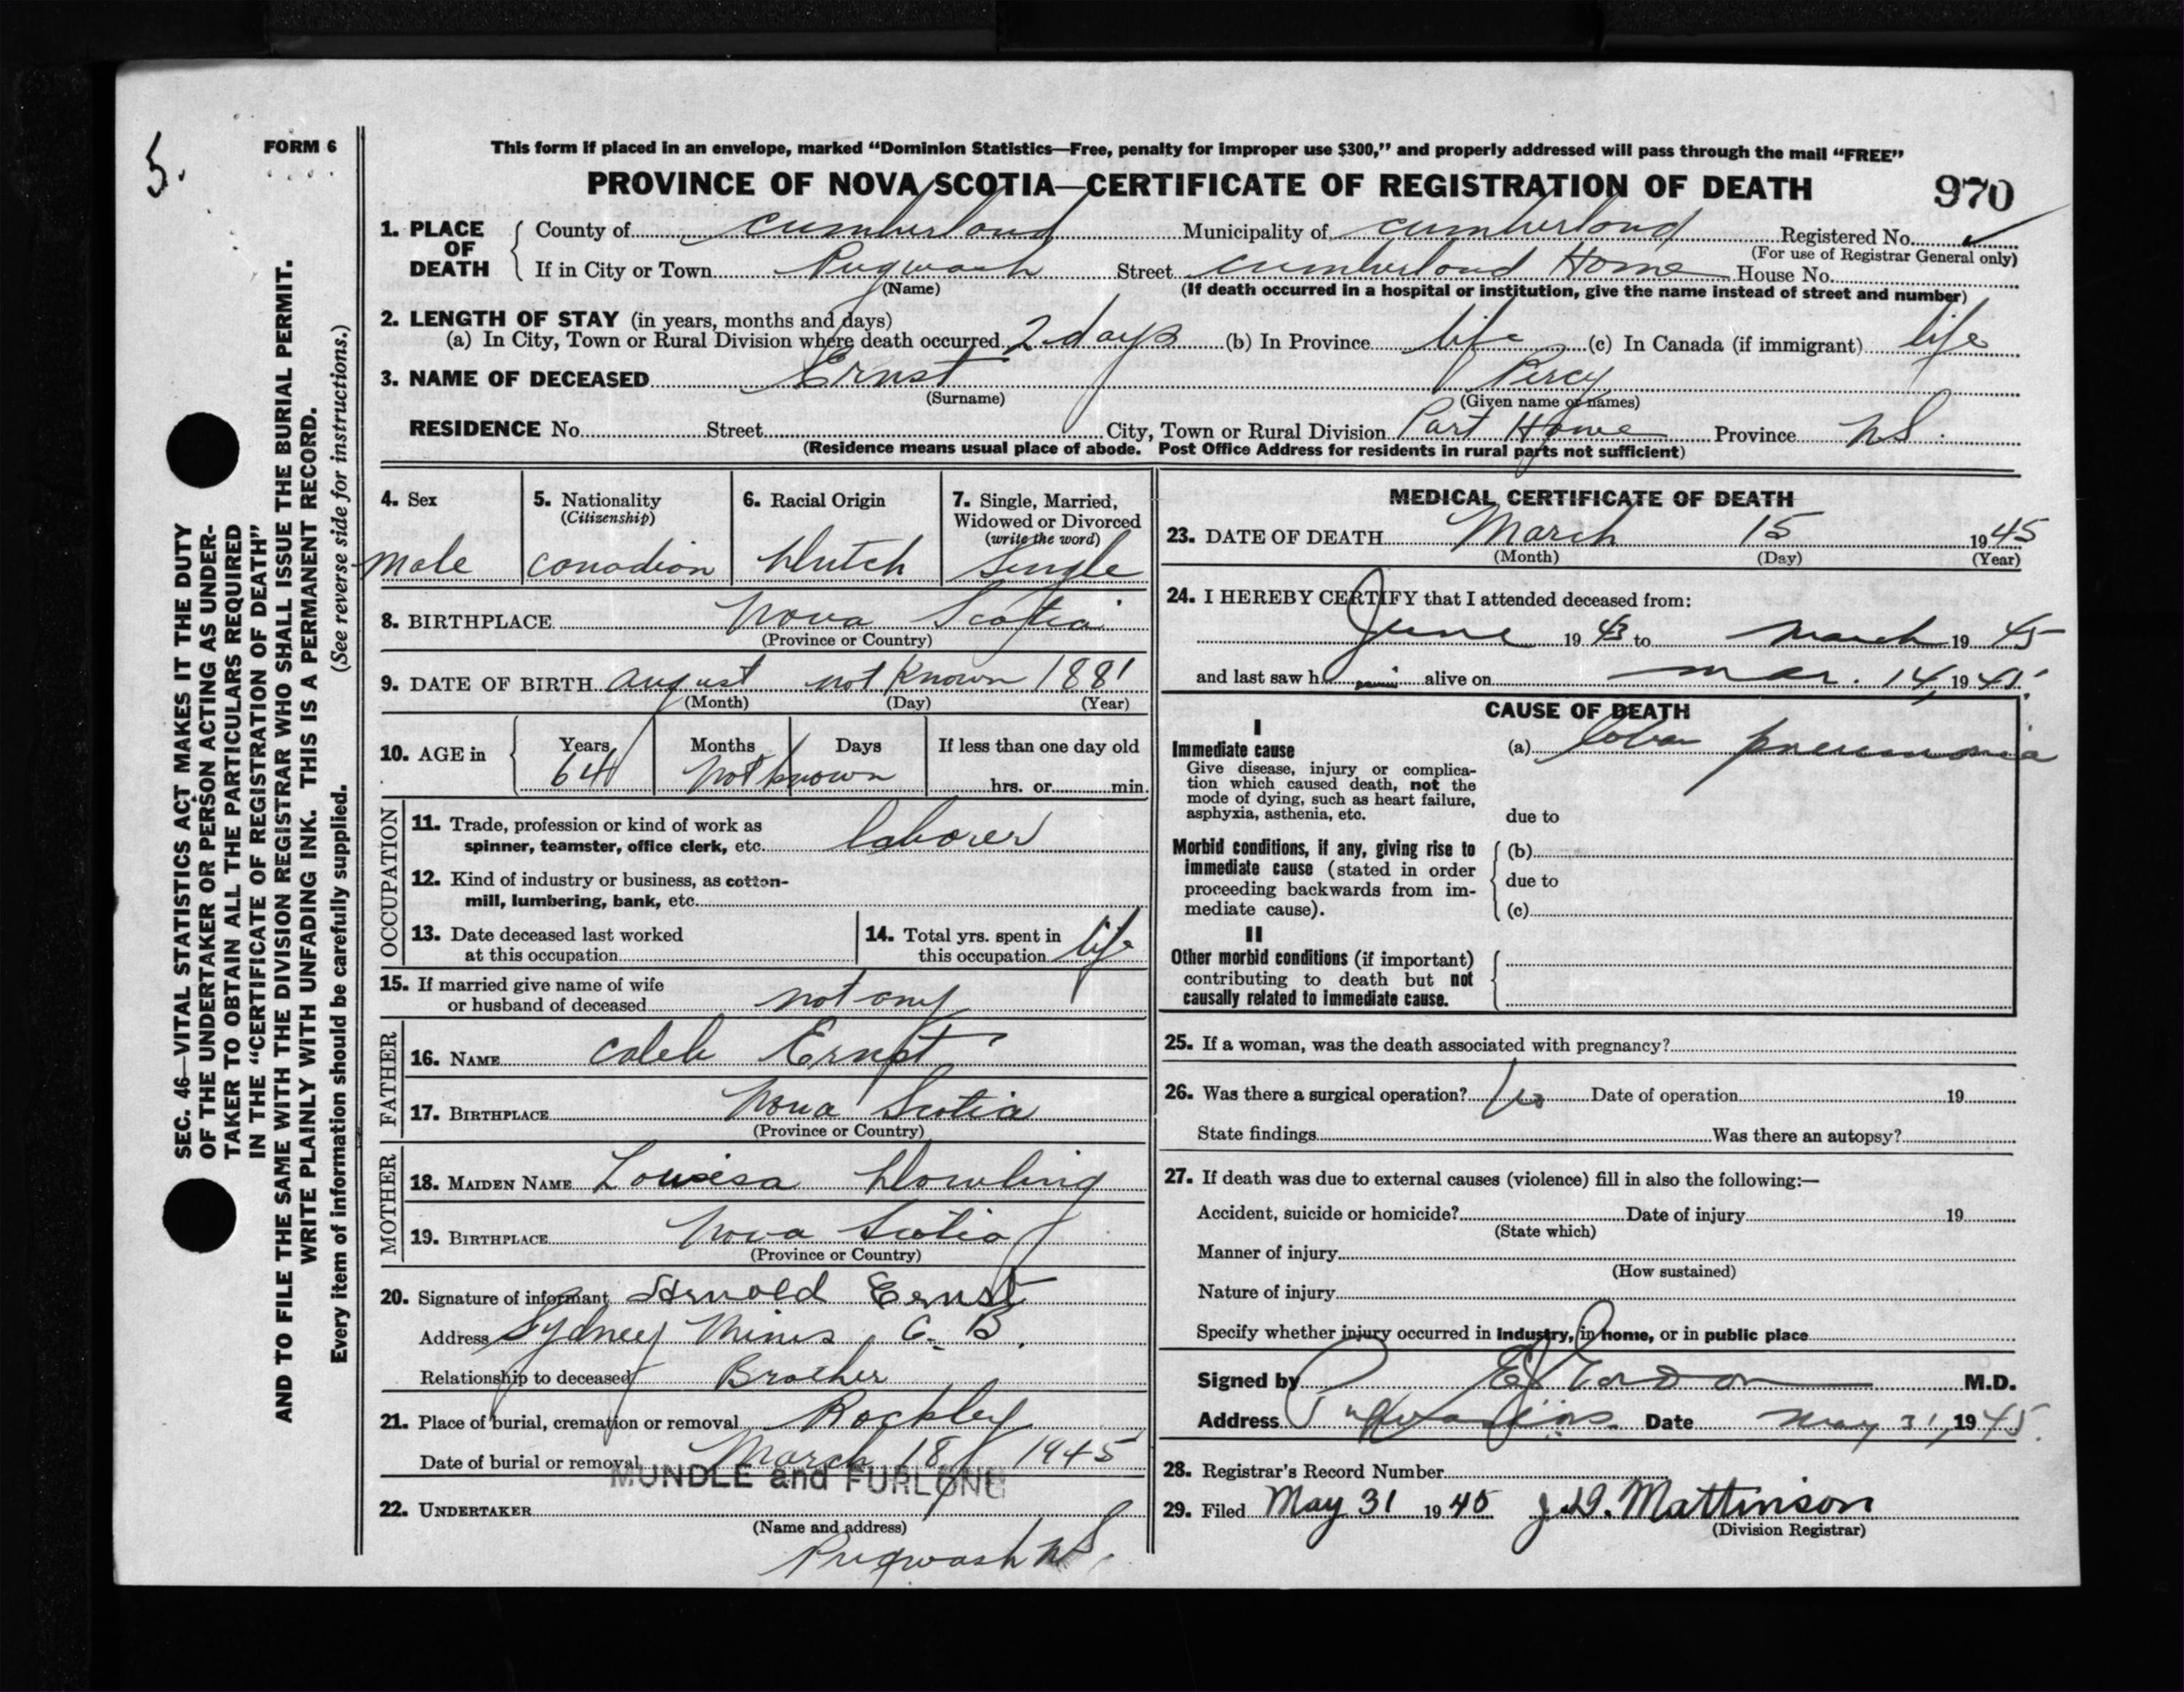 5.
FORM 6
This form if placed in an envelope, marked “Dominion Statistics—Free, penalty for improper use $300,” and properly addressed will pass through the mail “FREE”
PROVINCE OF NOVA SCOTIA—CERTIFICATE OF REGISTRATION OF DEATH
970
1. PLACE OF DEATH
County of Cumberland Municipality of Cumberland Registered No. ✓
(For use of Registrar General only)
If in City or Town Pugwash Street Cumberland Home House No.
(Name) (If death occurred in a hospital or institution, give the name instead of street and number)
2. LENGTH OF STAY (in years, months and days)
(a) In City, Town or Rural Division where death occurred 2 days (b) In Province life (c) In Canada (if immigrant) life
3. NAME OF DECEASED Ernst Percy
(Surname) (Given name or names)
RESIDENCE No. Street City, Town or Rural Division Port Howe Province N.S.
(Residence means usual place of abode. Post Office Address for residents in rural parts not sufficient)
4. Sex
male
5. Nationality
(Citizenship)
Canadian
6. Racial Origin
Dutch
7. Single, Married,
Widowed or Divorced
(write the word)
Single
8. BIRTHPLACE Nova Scotia
(Province or Country)
9. DATE OF BIRTH August not Known 1881
(Month) (Day) (Year)
10. AGE in
Years Months Days If less than one day old
64 not known hrs. or min.
OCCUPATION
11. Trade, profession or kind of work as
spinner, teamster, office clerk, etc. laborer
12. Kind of industry or business, as cotton-
mill, lumbering, bank, etc.
13. Date deceased last worked
at this occupation
14. Total yrs. spent in
this occupation life
15. If married give name of wife
or husband of deceased not any
FATHER
16. NAME Caleb Ernst
17. BIRTHPLACE Nova Scotia
(Province or Country)
MOTHER
18. MAIDEN NAME Louisa Dowling
19. BIRTHPLACE Nova Scotia
(Province or Country)
20. Signature of informant Arnold Ernst
Address Sydney Mines, C. B.
Relationship to deceased Brother
21. Place of burial, cremation or removal Rockley
Date of burial or removal March 18, 1945
MUNDLE and FURLONG
22. UNDERTAKER
(Name and address)
Pugwash N.S.
MEDICAL CERTIFICATE OF DEATH
23. DATE OF DEATH March 15 1945
(Month) (Day) (Year)
24. I HEREBY CERTIFY that I attended deceased from:
June 19 43 to March 19 45
and last saw h im alive on Mar. 14, 19 45.
CAUSE OF DEATH
I
Immediate cause
Give disease, injury or complica-
tion which caused death, not the
mode of dying, such as heart failure,
asphyxia, asthenia, etc.
(a) lobar pneumonia
due to
Morbid conditions, if any, giving rise to
immediate cause (stated in order
proceeding backwards from im-
mediate cause).
(b)
due to
(c)
II
Other morbid conditions (if important)
contributing to death but not
causally related to immediate cause.
25. If a woman, was the death associated with pregnancy?
26. Was there a surgical operation? No Date of operation 19
State findings Was there an autopsy?
27. If death was due to external causes (violence) fill in also the following:—
Accident, suicide or homicide? Date of injury 19
(State which)
Manner of injury
(How sustained)
Nature of injury
Specify whether injury occurred in industry, in home, or in public place
Signed by M.D.
Address Pugwash N.S. Date May 31, 19 45.
28. Registrar's Record Number
29. Filed May 31 19 45 J. D. Mattinson
(Division Registrar)
SEC. 46—VITAL STATISTICS ACT MAKES IT THE DUTY
OF THE UNDERTAKER OR PERSON ACTING AS UNDER-
TAKER TO OBTAIN ALL THE PARTICULARS REQUIRED
IN THE “CERTIFICATE OF REGISTRATION OF DEATH”
AND TO FILE THE SAME WITH THE DIVISION REGISTRAR WHO SHALL ISSUE THE BURIAL PERMIT.
WRITE PLAINLY WITH UNFADING INK. THIS IS A PERMANENT RECORD.
Every item of information should be carefully supplied. (See reverse side for instructions.)